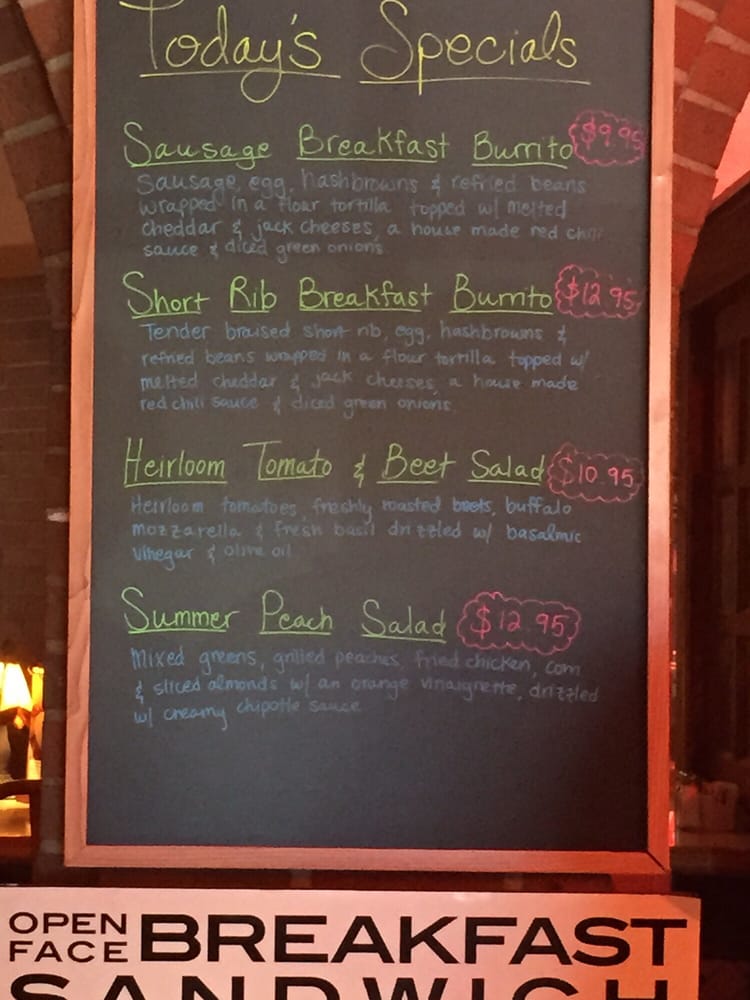 Today's Specials
Sausage Breakfast Burrito $9.95
Sausage, egg, hashbrowns & refried beans
wrapped in a flour tortilla topped w/ melted
cheddar & jack cheeses, a house made red chili
sauce & diced green onions.
Short Rib Breakfast Burrito $12.95
Tender braised short rib, egg, hashbrowns &
refried beans wrapped in a flour tortilla topped w/
melted cheddar & jack cheeses, a house made
red chili sauce & diced green onions.
Heirloom Tomato & Beet Salad $10.95
Heirloom tomatoes, freshly roasted beets, buffalo
mozzarella & fresh basil drizzled w/ basalmic
vinegar & olive oil.
Summer Peach Salad $12.95
Mixed greens, grilled peaches, fried chicken, corn
& sliced almonds w/ an orange vinaigrette, drizzled
w/ creamy chipotle sauce
OPEN FACE BREAKFAST
SANDWICH